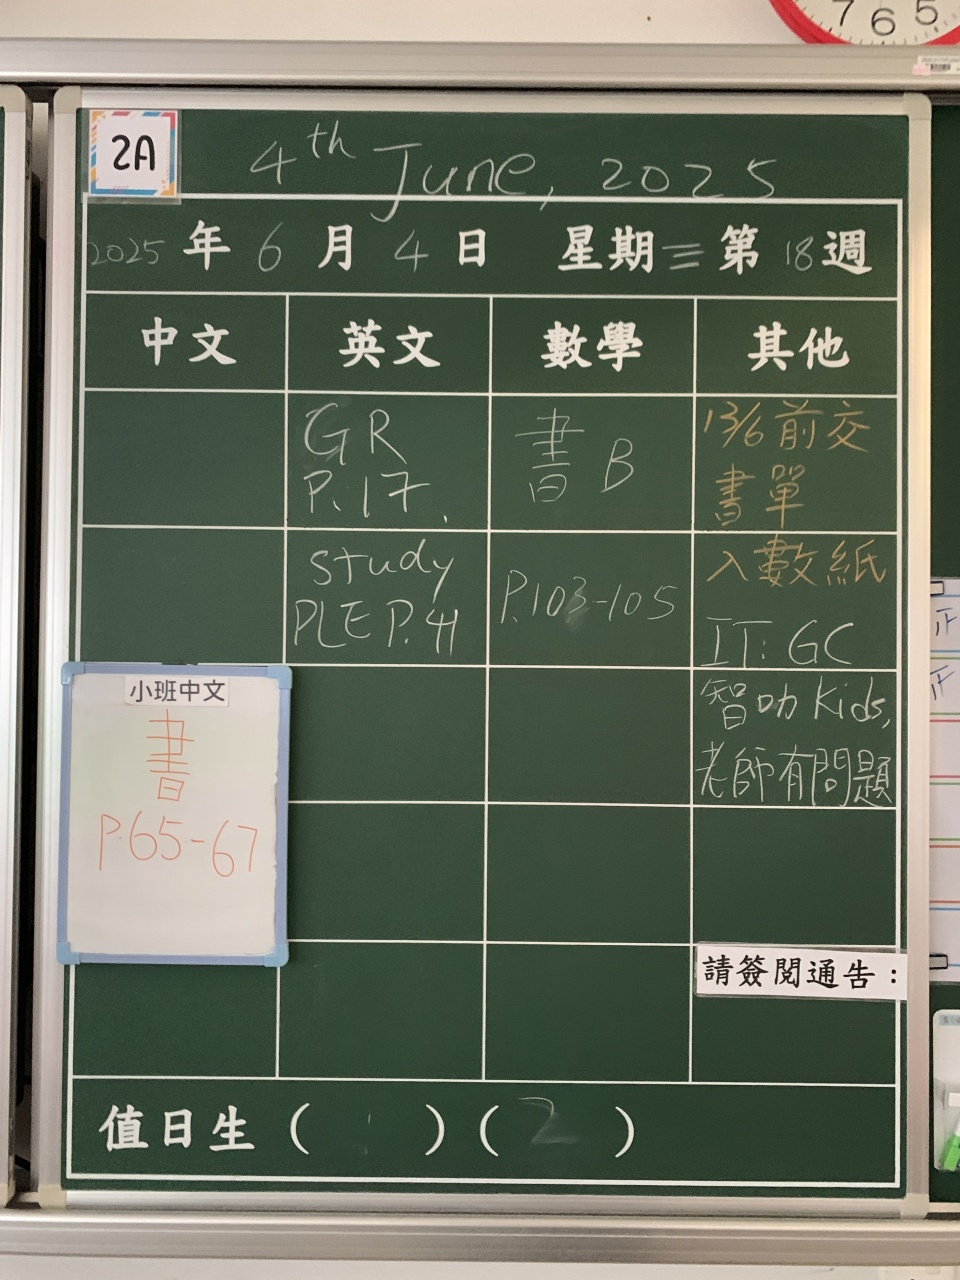 7 6 5
2A
4th June, 2025
2025 年 6 月 4 日 星期三 第 18 週
中文 英文 數學 其他
GR
P.17.
書 B
13/6前交
書單
study
PLE P.41
P.103-105
入數紙
IT: GC
智叻 Kids,
老師有問題
小班中文
書
P.65-67
請簽閱通告：
值日生 ( 1 ) ( 2 )